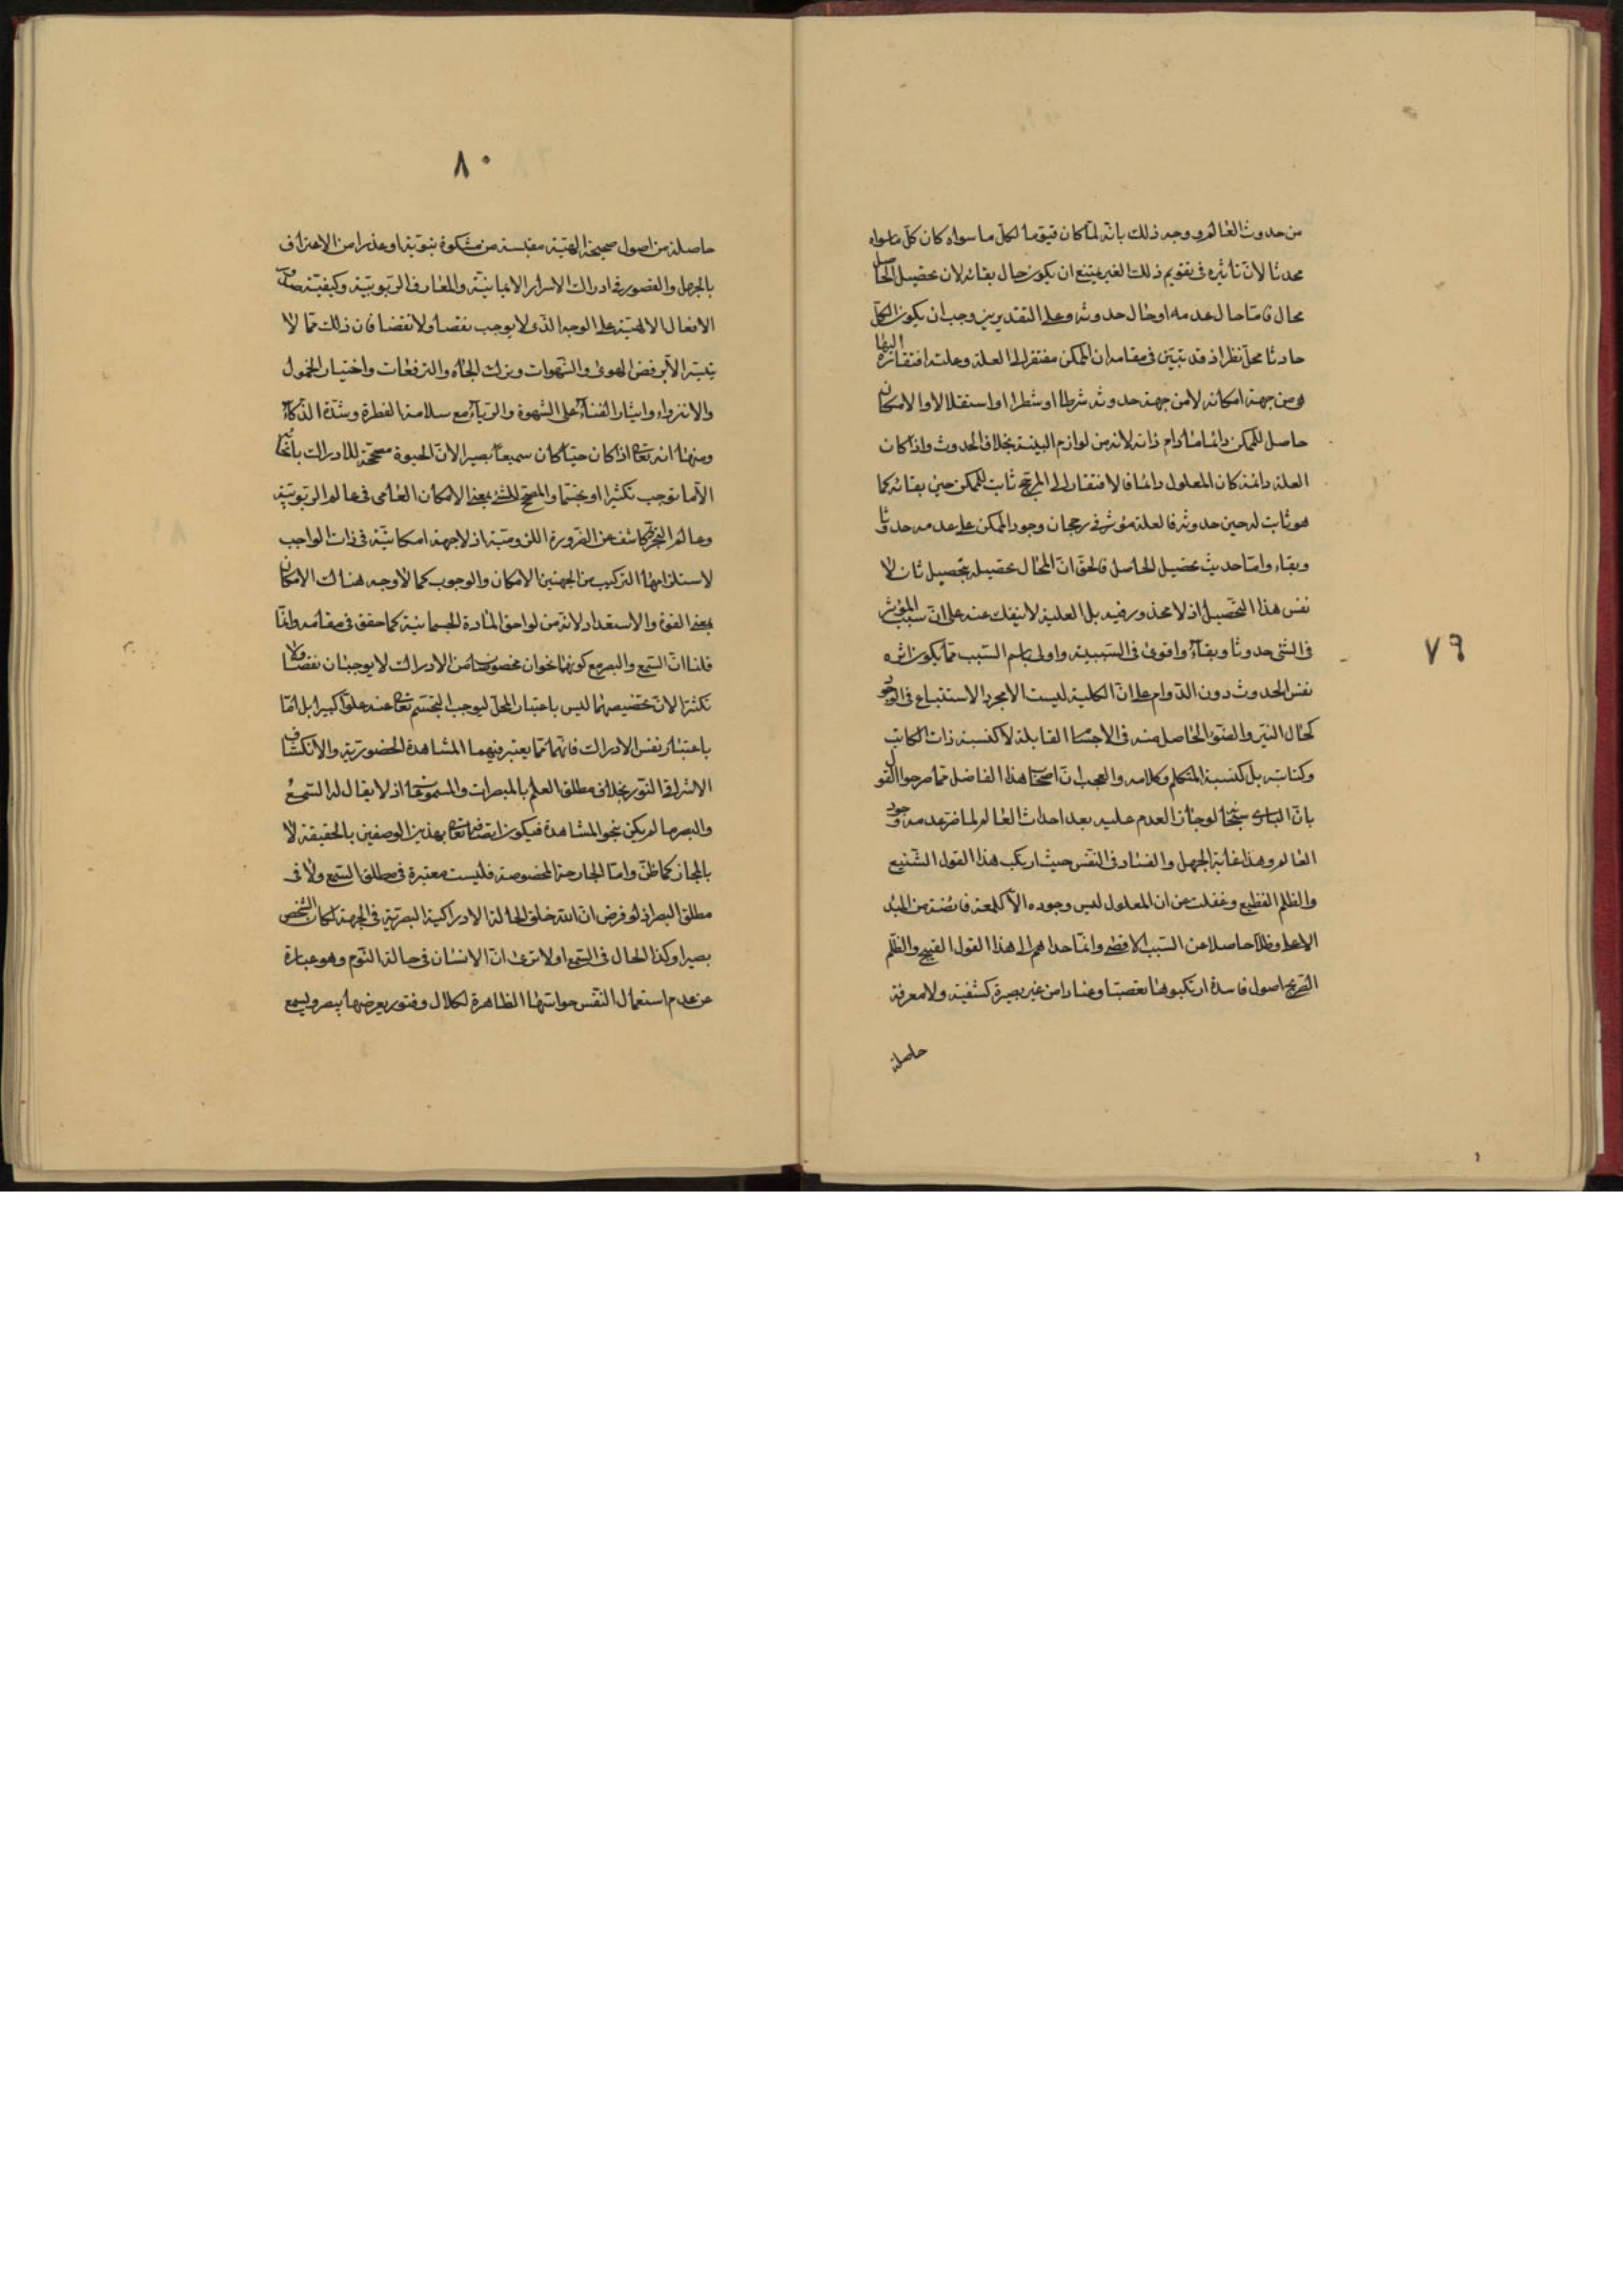 من حدوث العالم ووجه ذلك بانه لما كان قيوما لكل ما سواه كان كل ما سواه
محدثا لان تاثيره فى تقويم ذلك الغير يمتنع ان يكون حال بقائه لان تحصيل الحاصل
محال فامّا حال عدمه او حال حدوثه وعلى التقديرين وجب ان يكون الكلّ
حادثا محلّ نظر اذ قد تبيّن فى مقامه ان الممكن مفتقر الى العلة وعلة افتقاره اليها
هو من جهة امكانه لا من جهة حدوثه شرطا او شطرا او استقلالا والامكان
حاصل للممكن دائما مادام ذاته لانه من لوازمه البينة بخلاف الحدوث واذا كان
العلة دائمة كان المعلول دائما فالافتقار الى المرجّح ثابت للممكن حين بقائه كما
هو ثابت له حين حدوثه فالعلة مؤثر فى رجحان وجود الممكن على عدمه حدوثا
وبقاء وامّا حديث تحصيل الحاصل فالحقّ انّ المحال تحصيله بتحصيل ثان لا
نفس هذا التّحصيل اذ لا محذور فيه بل العلية لا ينفك عنه على انّ سبب المؤثر
فى الشئ حدوثا وبقآءً واقوى فى السّببيّة واولى باسم السّبب ممّا يكون اثره
نفس الحدوث دون الدّوام على انّ الكلية ليست الا مجرد الاستتباع فى الوجود
كحال النيّر والضوء الحاصل منه فى الاجسام القابلة لا كنسبة ذات الكاتب
وكتابته بل كنسبة المتكلم وكلامه والعجب انّ اصحاب هذا الفاضل ممّا صرحوا القول
بانّ البارى سبحانه لو جاز العدم عليه بعد احداث العالم لما ضرّ عدمه وجود
العالم وهذا غاية الجهل والفساد فى النّفس حيث ارتكب هذا القول الشّنيع
والظلم الفظيع وغفلت عن ان المعلول ليس وجوده الّا كلمعة فائضة من المبدء
الاعلى وظلّا حاصلا من السّبب الاقصى وانّما حداهم الى هذا القول القبيح والظّلم
الصّريح اصول فاسدة ارتكبوها تعصبّا وعنادا من غير بصيرة كشفيّة ولا معرفة
حاصلة
٧٩
٨٠
حاصلة من اصول صحيحة الهيّة مقتبسة من مشكوة نبوّية او عذرا من الاعتراف
بالجهل والقصور فى ادراك الاسرار الايمانيّة والمعارف الرّبوبيّة وكيفيّة صدور
الافعال الالهيّة على الوجه الّذى لا يوجب نقصا ولا نقضا فان ذلك ممّا لا
يتيسّر الّا برفض الهوى والشّهوات وبترك الجاه والترفعات واختيار الخمول
والانزواء وايثار الفنآء على الشهوة والرّيآء مع سلامة الفطرة وشدّة الذّكآء
ومنها انه تعالى اذا كان حيّا كان سميعاً بصيرا لانّ الحيوة مصحّحة للادراك بانحائه
الّا ما توجب تكثرا او تجسّما والمصحّح للشئ بمعنى الامكان العامى فى عالم الرّبوبيّة
وعالم التجرّد كاشف عن الضّرورة اللزوميّة اذ لا جهة امكانيّة فى ذات الواجب
لاستلزامها التركيب من الجهتين الامكان والوجوب كما لا وجه هناك الامكان
بمعنى القوة والاستعداد لانّه من لواحق المادة الجسمانيّة كما حقق فى مقامه وانّما
قلنا انّ السّمع والبصر مع كونهما نحوان مخصوصان من الادراك لا يوجبان نقصا ولا
تكثّرا لانّ تخصيصهما ليس باعتبار المحلّ ليوجب التجسّم تعالى عنه علوّا كبيرا بل امّا
باعتبار نفس الادراك فانّهما ممّا يعتبر فيهما المشاهدة الحضوريّة والانكشاف
الاشراقى النّورى بخلاف مطلق العلم بالمبصرات والمسموعات اذ لا يقال له السّمع
والبصر ما لم يكن بنحو المشاهدة فيكون اتّصافه تعالى بهذين الوصفين بالحقيقة لا
بالمجاز كما ظنّ وامّا الجارحة المخصوصة فليست معتبرة فى مطلق السّمع ولا فى
مطلق البصر اذ لو فرض انّ الله خلق الحالة الادراكية البصريّة فى الجبهة لكان الشّخص
بصيرا وكذا الحال فى السّمع اولا ترى انّ الانسان فى حالة النّوم وهو عبارة
عن عدم استعمال النّفس حواسّها الظاهرة لكلال وفتور يعرضها يبصر ويسمع